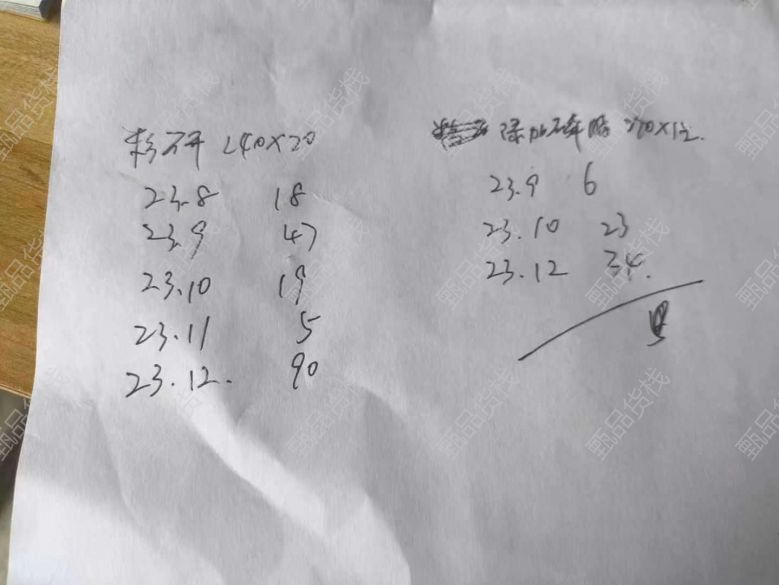 杉不开 240×20
23.8 18
23.9 47
23.10 19
23.11 5
23.12. 90
270×12
23.9 6
23.10 23
23.12 34.
甄品货栈